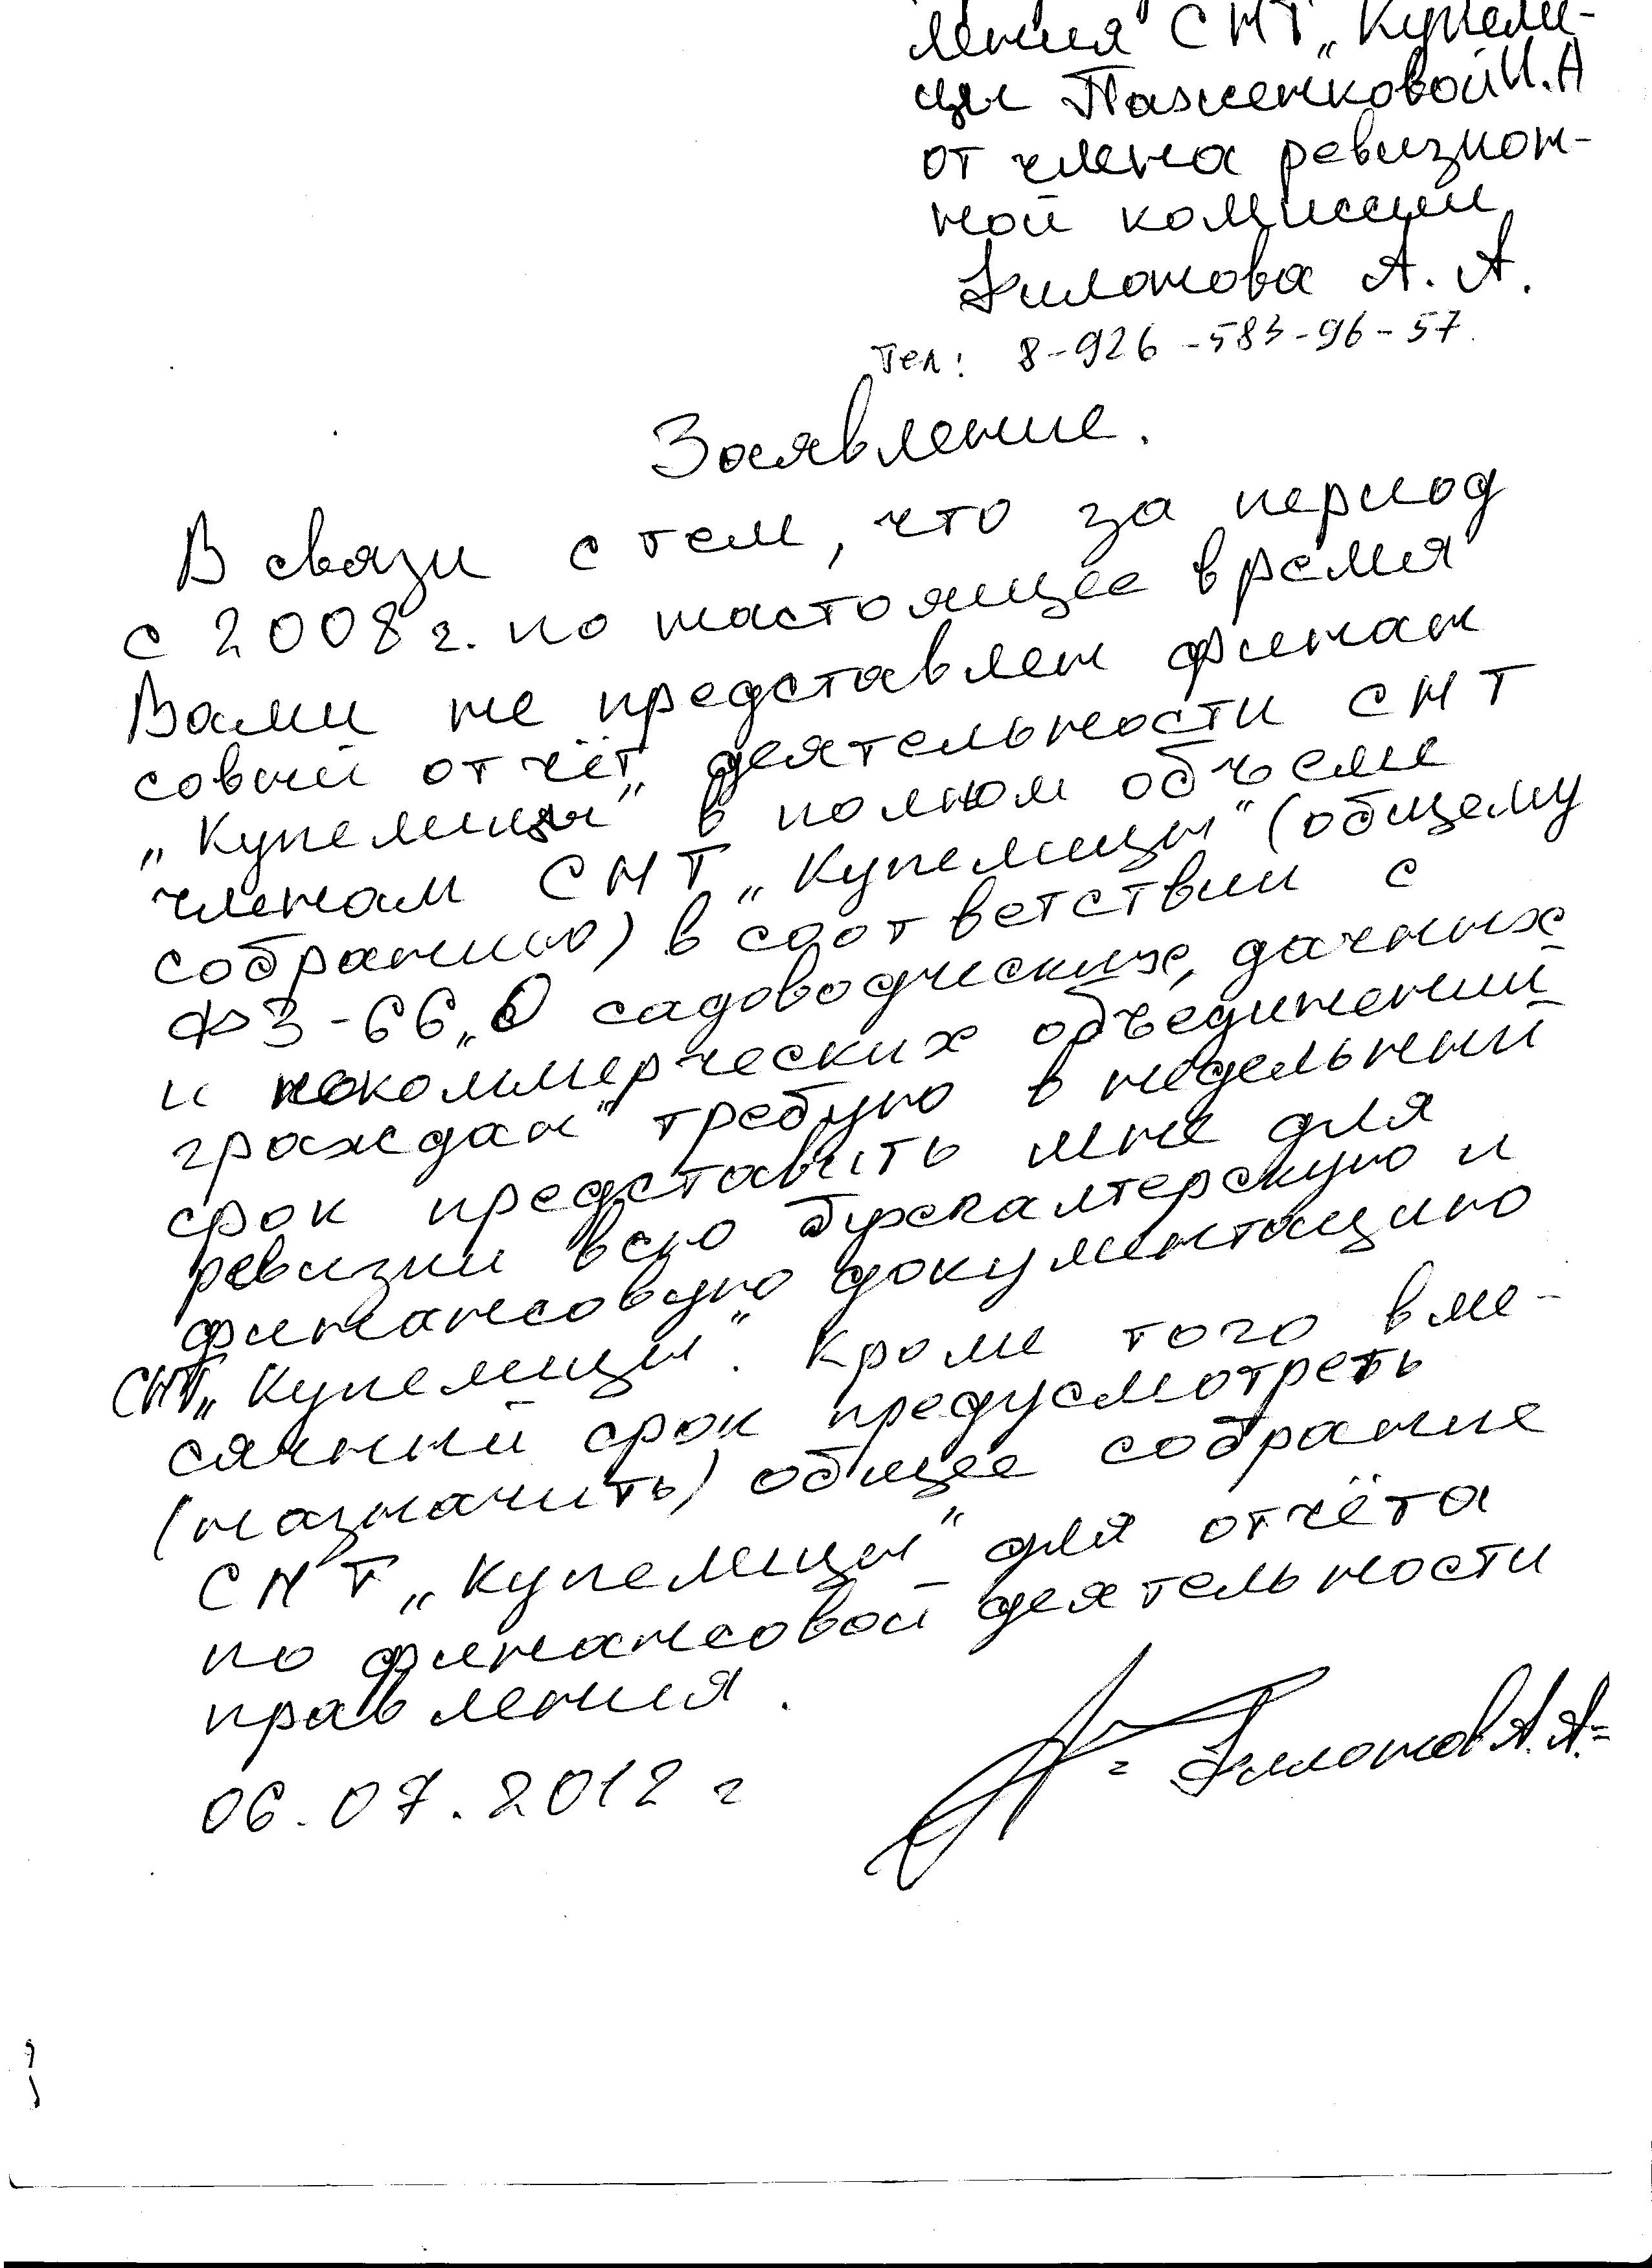 ления СНТ „Купели-
цы Паженковой И.А
от члена ревизион-
ной комиссии
Филонова А. А.
Тел: 8-926-583-96-57.
Заявление.
В связи с тем, что за период
с 2008 г. по настоящее время
Вами не представлен финан
совый отчёт деятельности СНТ
„Купелицы" в полном объеме
членам СНТ „Купелицы" (общему
собранию) в соответствии с
ФЗ-66 „О садоводческих, дачных
и некоммерческих объединений
граждан" требую в недельный
срок представить мне для
ревизии всю бухгалтерскую и
финансовую документацию
СНТ „Купелицы". Кроме того в ме-
сячный срок предусмотреть
(назначить) общее собрание
СНТ „Купелицы" для отчёта
по финансовой деятельности
правления.
06.07.2012 г
= Филонов А. А. =